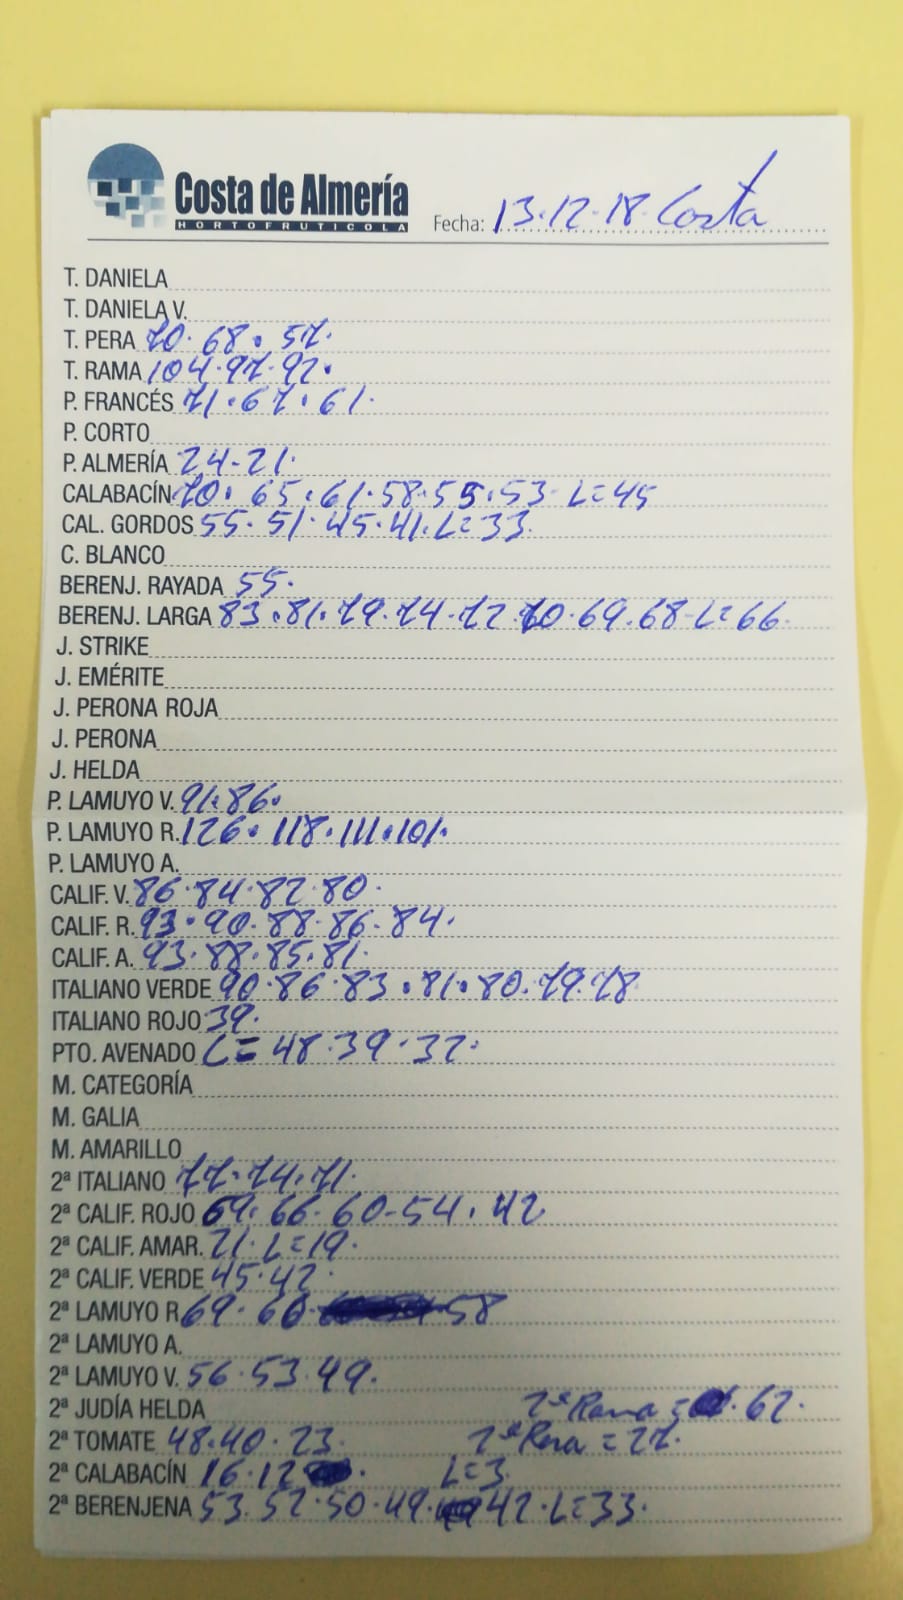 Costa de Almería
HORTOFRUTICOLA
Fecha: 13.12.18. Costa
T. DANIELA
T. DANIELA V.
T. PERA 70. 68. 57.
T. RAMA 104.97.92.
P. FRANCÉS 71. 67. 61.
P. CORTO
P. ALMERÍA 24-21.
CALABACÍN 70. 65.61.58.55.53- L=45
CAL. GORDOS 55.51.45.41.L=33.
C. BLANCO
BERENJ. RAYADA 55.
BERENJ. LARGA 83.81.79.74.72.70.69.68-L=66.
J. STRIKE
J. EMÉRITE
J. PERONA ROJA
J. PERONA
J. HELDA
P. LAMUYO V. 91.86.
P. LAMUYO R. 126. 118.111.101.
P. LAMUYO A.
CALIF. V. 86.84.82.80.
CALIF. R. 93.90.88.86.84.
CALIF. A. 93.88.85.81.
ITALIANO VERDE 90.86.83.81.80.79.78
ITALIANO ROJO 39.
PTO. AVENADO L= 48.39.32.
M. CATEGORÍA
M. GALIA
M. AMARILLO
2ª ITALIANO 77.74.71.
2ª CALIF. ROJO 69. 66.60-54.42
2ª CALIF. AMAR. 21.L=19.
2ª CALIF. VERDE 45.42.
2ª LAMUYO R. 69.60. 58
2ª LAMUYO A.
2ª LAMUYO V. 56.53.49.
2ª JUDÍA HELDA 2ª Rama = 62.
2ª TOMATE 48.40.23. 2ª Pera = 27.
2ª CALABACÍN 16.12 L=3.
2ª BERENJENA 53.52.50.49. 42.L=33.